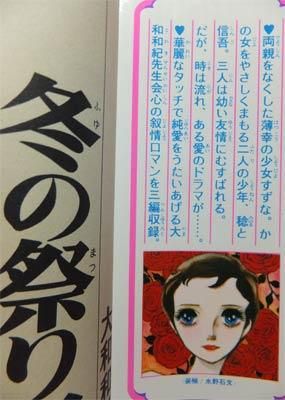 ♥両親をなくした薄幸の少女すずな。か
の女をやさしくまもる二人の少年、稔と
信吾。三人は幼い友情にむすばれる。
だが、時は流れ、ある愛のドラマが……。
♥華麗なタッチで純愛をうたいあげる大
和和紀先生会心の叙情ロマンを三編収録。
〈装幀/水野石文〉
冬の祭り
ふゆ
まつ
大和和